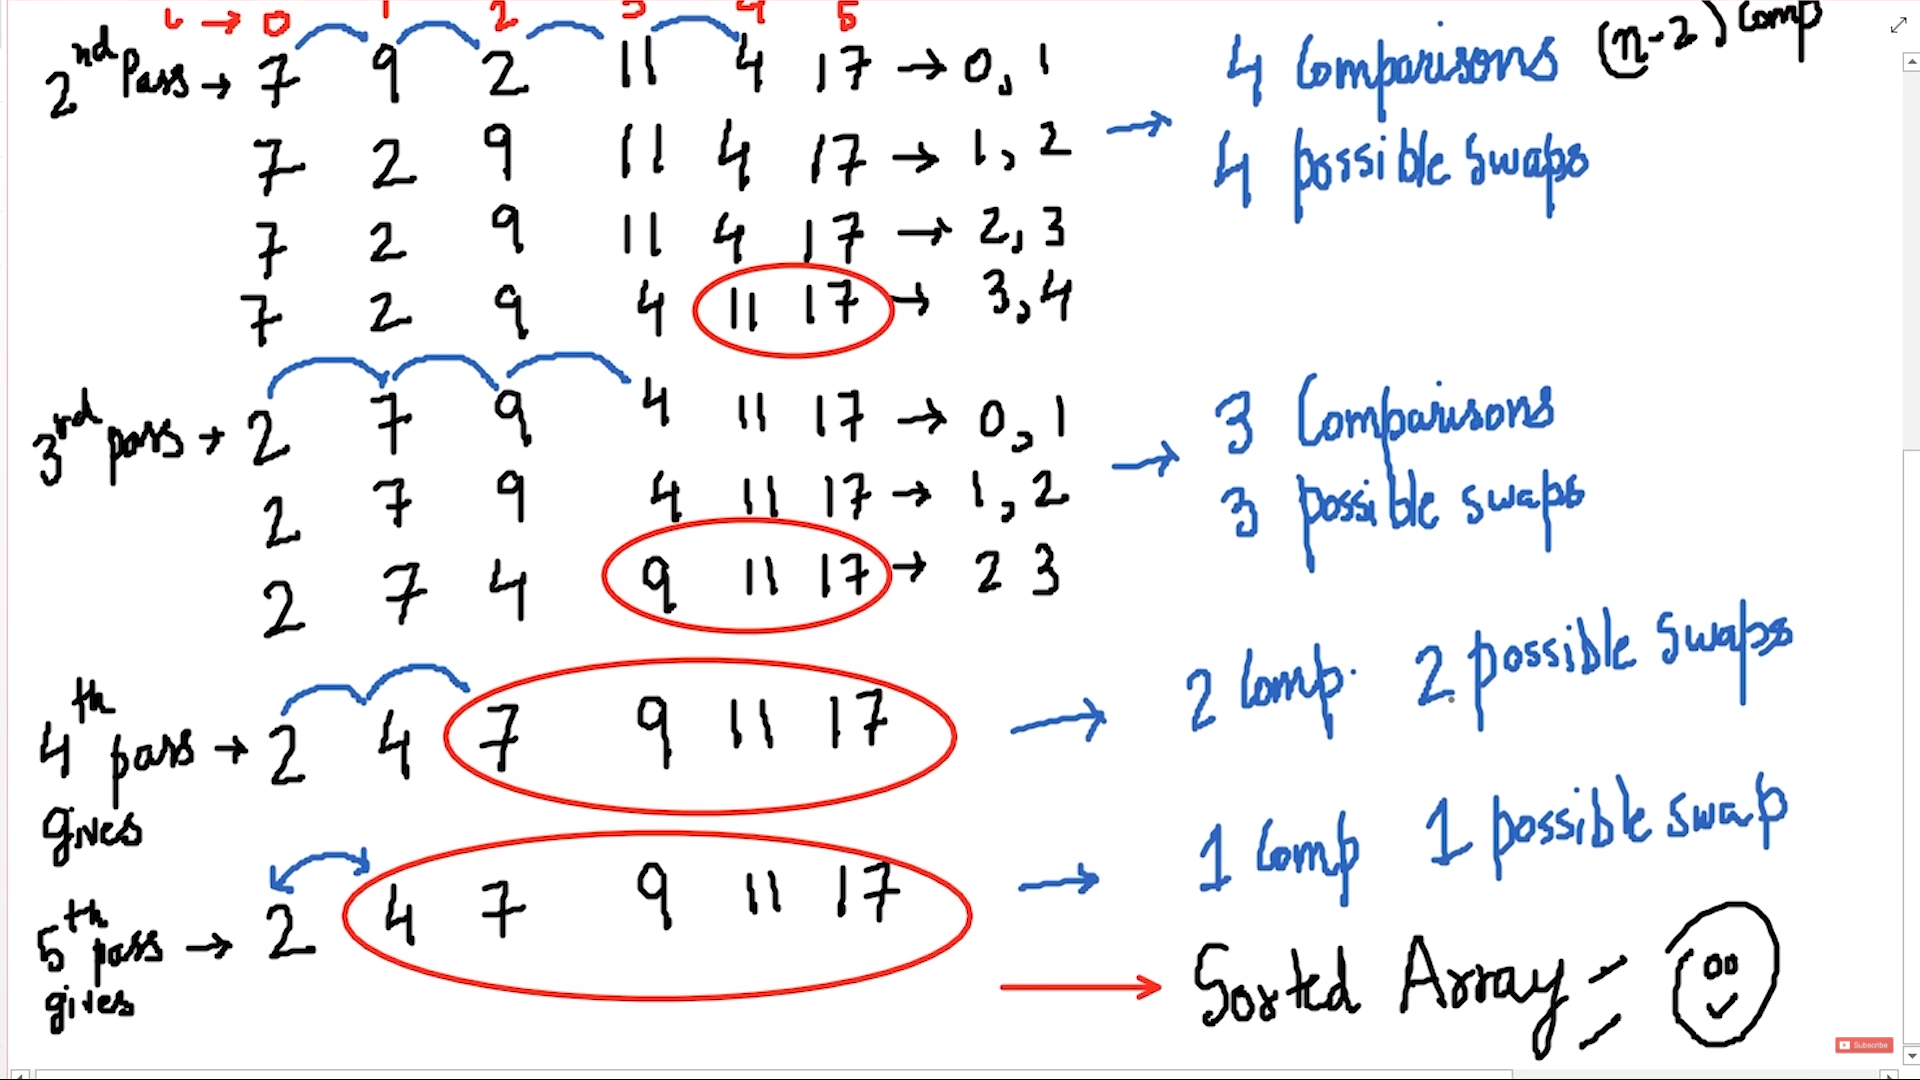 i → 0 1 2 3 4 5
(n-2) Comp
2nd Pass → 7 9 2 11 4 17 → 0, 1
7 2 9 11 4 17 → 1, 2
7 2 9 11 4 17 → 2, 3
7 2 9 4 11 17 → 3, 4
→ 4 Comparisons
4 possible swaps
3rd pass → 2 7 9 4 11 17 → 0, 1
2 7 9 4 11 17 → 1, 2
2 7 4 9 11 17 → 2 3
→ 3 Comparisons
3 possible swaps
4th pass → 2 4 7 9 11 17 → 2 Comp. 2 possible swaps
gives
5th pass → 2 4 7 9 11 17 → 1 Comp 1 possible swap
gives
→ Sorted Array
Subscribe